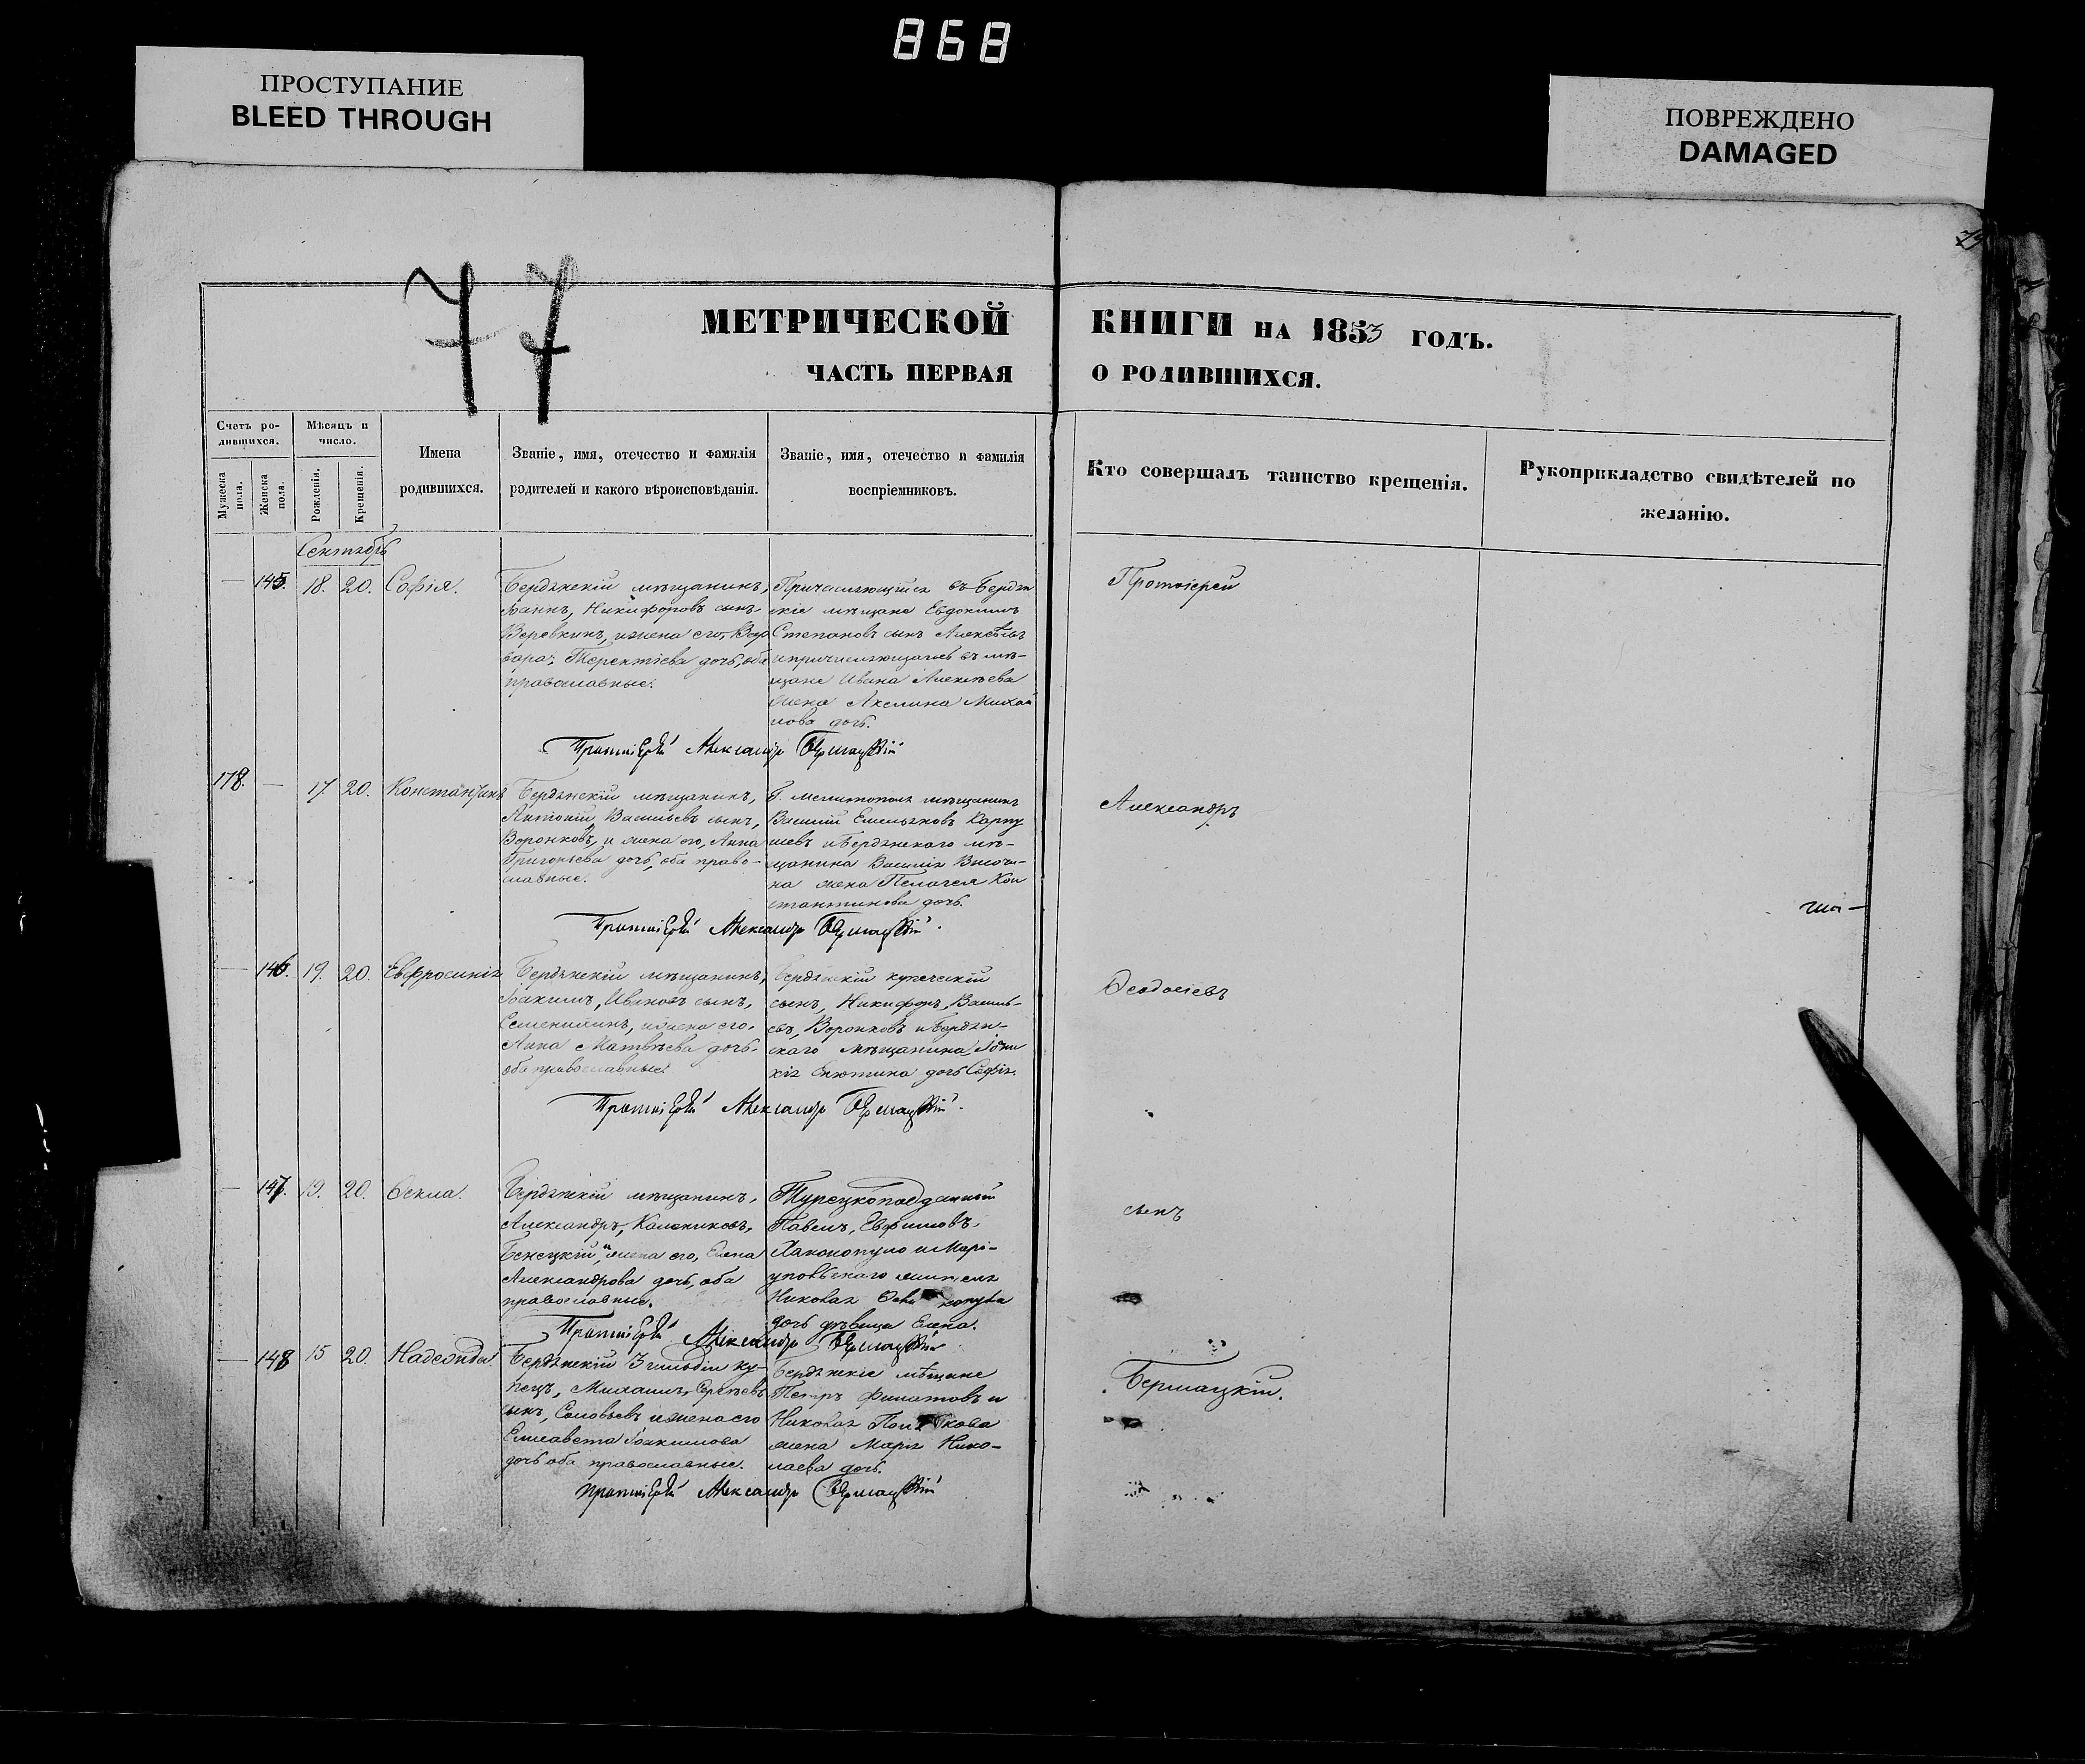 868
ПРОСТУПАНИЕ
BLEED THROUGH
ПОВРЕЖДЕНО
DAMAGED
77
МЕТРИЧЕСКОЙ КНИГИ НА 1853 ГОДЪ.
ЧАСТЬ ПЕРВАЯ О РОДИВШИХСЯ.
Счетъ ро-
дившихся.
Мужеска
пола.
Женска
пола.
Мѣсяцъ и
число.
Рожденія.
Крещенія.
Имена
родившихся.
Званіе, имя, отечество и фамилія
родителей и какого вѣроисповѣданія.
Званіе, имя, отечество и фамилія
воспріемниковъ.
Кто совершалъ таинство крещенія.
Рукоприкладство свидѣтелей по
желанію.
Сентябрь
— 145. 18. 20. Софія.
Бердянскій мѣщанинъ,
Іоаннъ, Никифоровъ сынъ
Веровкинъ, и жена его, Вар
вара, Терентіева дочь, оба
православные.
Причисляющийся въ Бердян
скіе мѣщане Евдокимъ
Степановъ сынъ
и причисляющагося въ мѣ-
щане Ивана Алексѣева
жена Акелина Михай
лова дочь.
Протоіерей Александръ Бершацкій
178. — 17. 20. Константинъ
Бердянскій мѣщанинъ,
Антоній, Васильевъ сынъ,
Воронковъ, и жена его, Анна
Григорьева дочь, оба право-
славные.
Г. Мелитополя мѣщанинъ
Василій Емельяновъ Карпу
шевъ и Бердянскаго мѣ-
щанина Василія Височи-
на жена Пелагея Кон
стантинова дочь.
Протоіерей Александръ Бершацкій.
— 146. 19. 20. Евфросинія
Бердянскій мѣщанинъ,
Іоакимъ, Ивановъ сынъ,
и жена его,
Анна Матвѣева дочь,
оба православные.
Бердянскій купеческій
сынъ, Никифоръ, Василь-
евъ, Воронковъ и Бердян-
скаго мѣщанина,
дочь Софія.
Протоіерей Александръ Бершацкій.
— 147. 19. 20. Ѳекла.
Бердянскій мѣщанинъ,
Александръ, Калениковъ,
Бенецкій, и жена его, Елена
Александрова дочь, оба
православные.
Турецкоподданный
Павелъ, Евфимовъ,
Хаконопуло и Марі-
упольскаго жителя
Николая
дочь дѣвица Елена.
Протоіерей Александръ Бершацкій
— 148 15 20. Надежда.
Бердянскій 3 гильдіи ку-
пецъ, Михаилъ, Сергѣевъ
сынъ, Соловьевъ и жена его
Елисавета Іоакимова
дочь оба православные.
Бердянскіе мѣщане
Петръ Филатовъ и
Николая
жена Марія Нико-
лаева дочь.
Протоіерей Александръ Бершацкій
Протоіерей
Александръ
Ѳеодосіевъ
сынъ
Бершацкій.